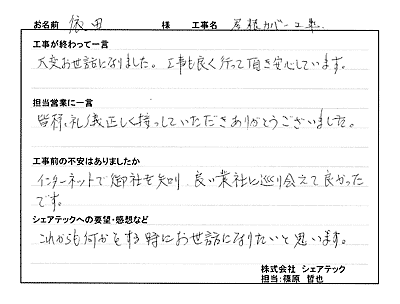 お名前 依田 様 工事名 屋根カバー工事
工事が終わって一言
大変お世話になりました。工事も良く行って頂き安心しています。
担当営業に一言
皆様、礼儀正しく接っしていただきありがとうございました。
工事前の不安はありましたか
インターネットで御社を知り、良い業社に巡り会えて良かった
です。
シェアテックへの要望・感想など
これからも何かをする時にお世話になりたいと思います。
株式会社 シェアテック
担当:篠原 哲也